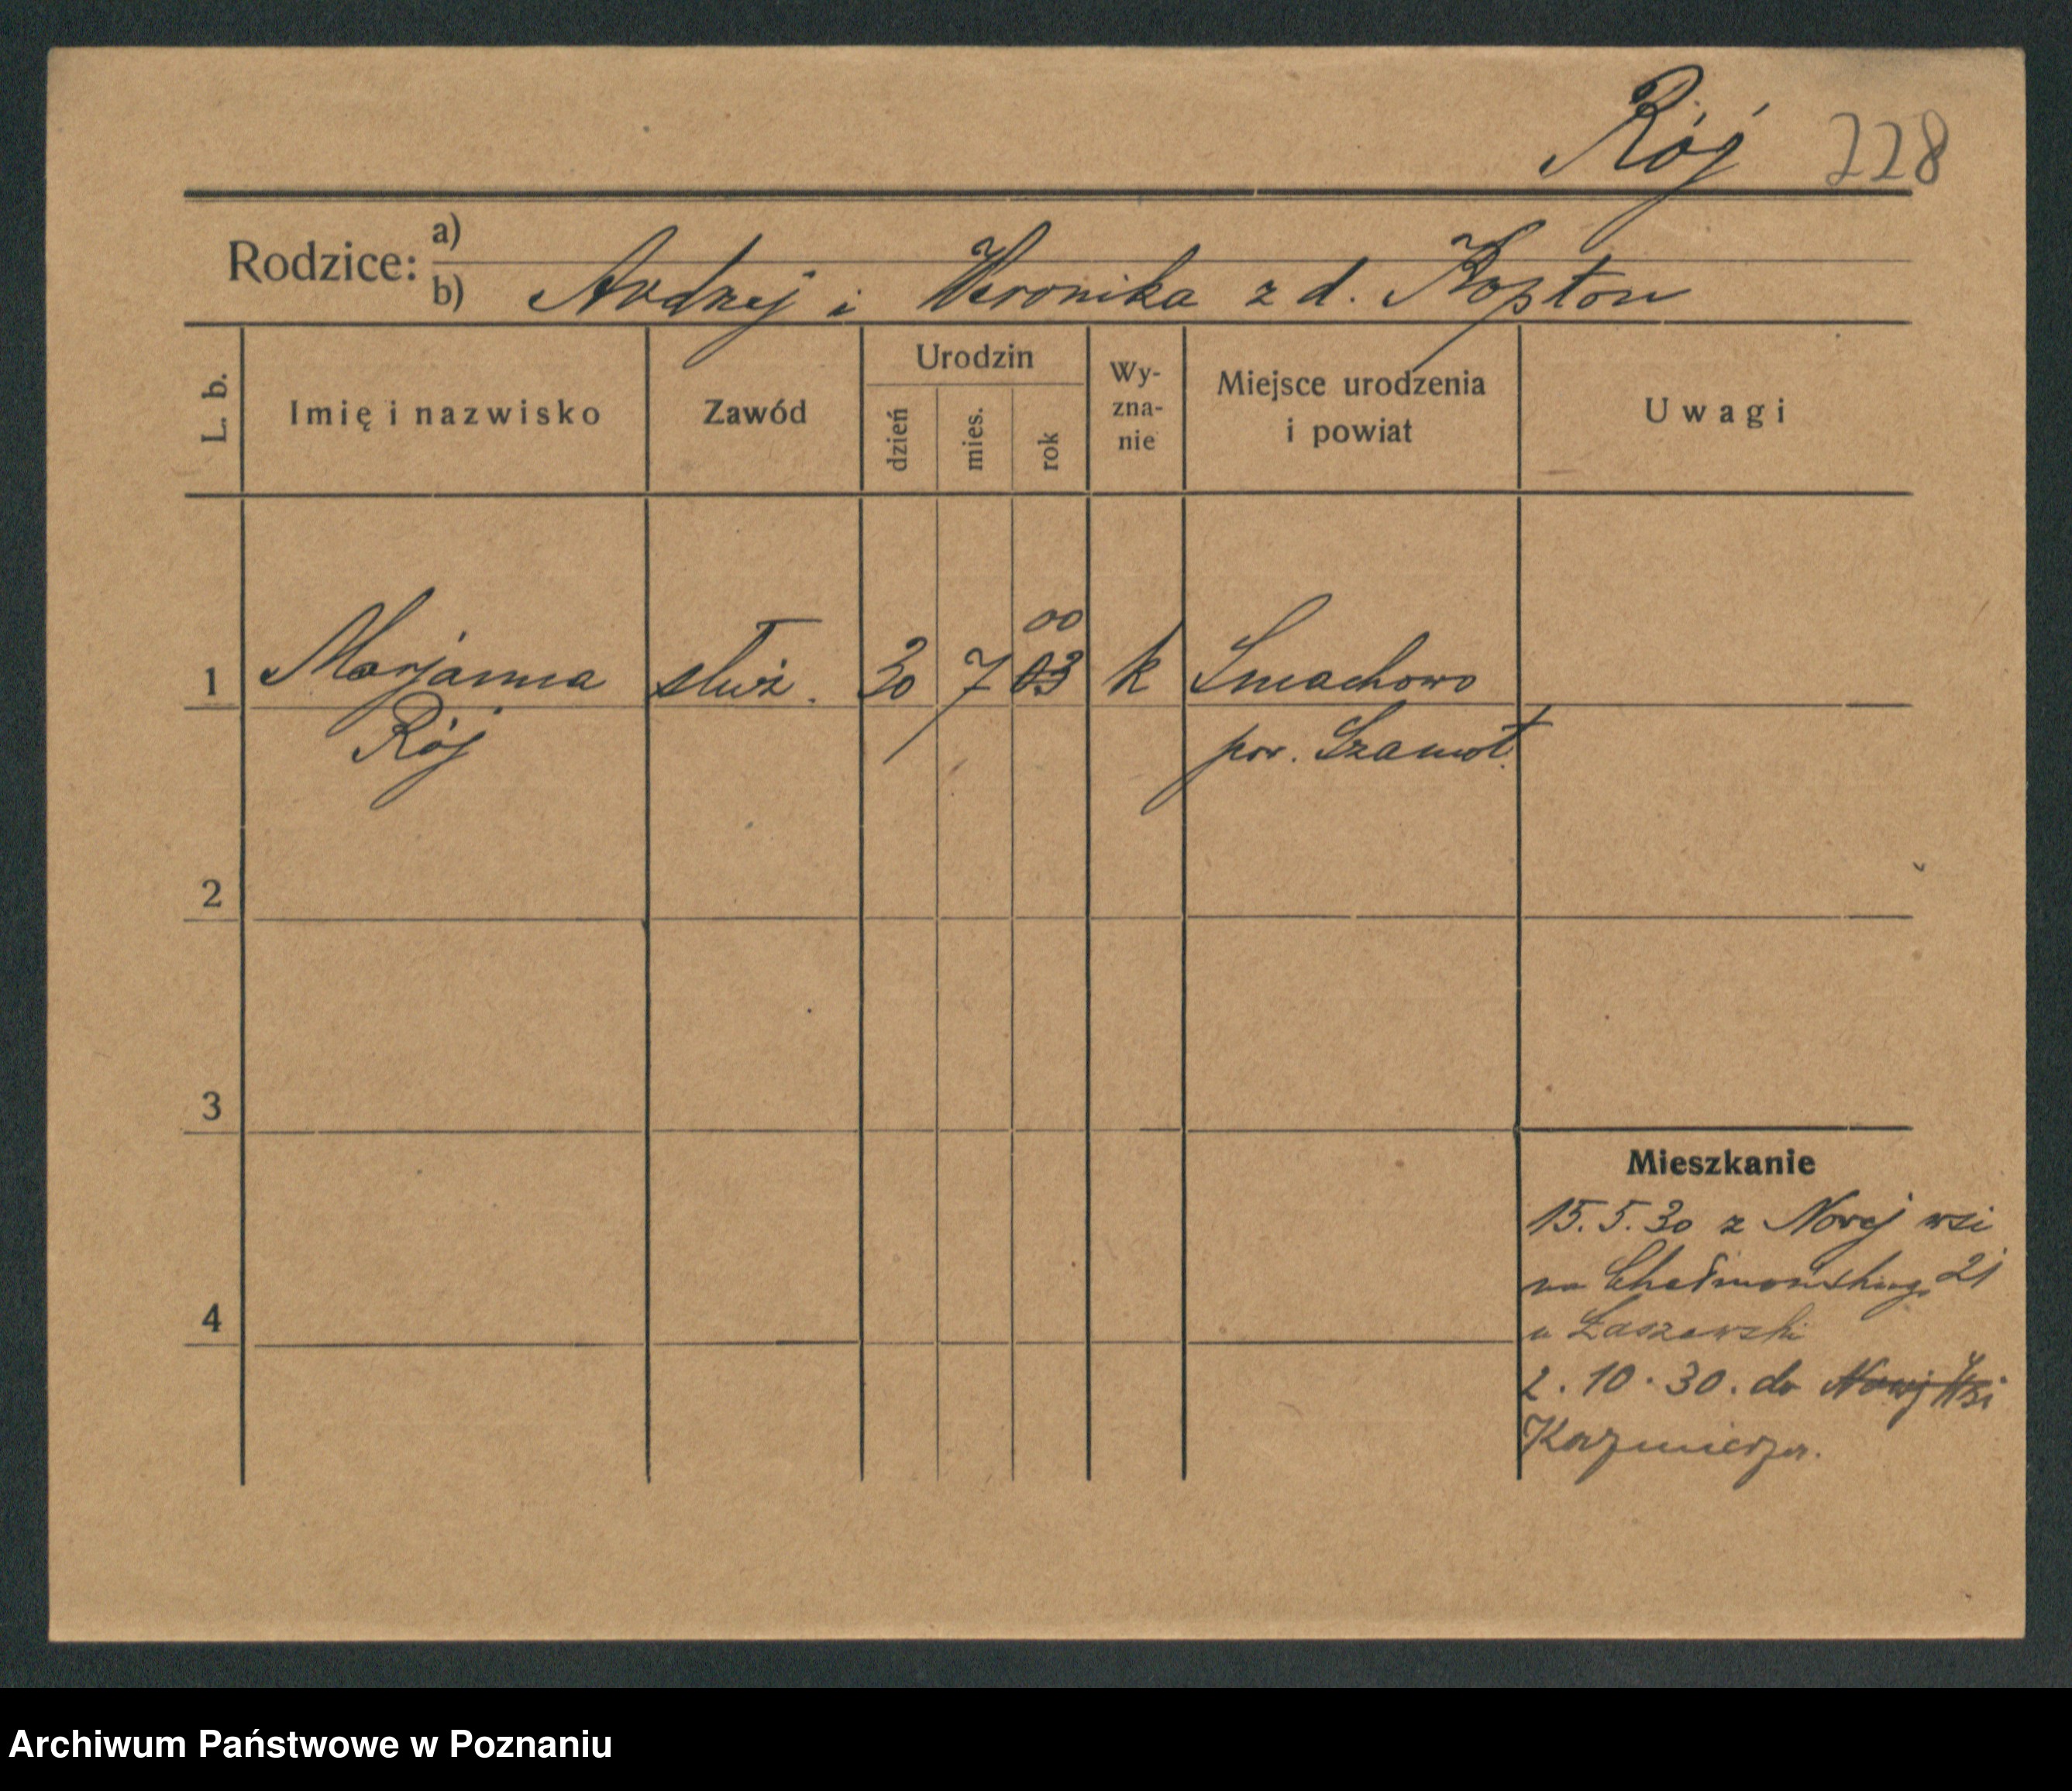 Rój 228
Rodzice: a)
b) Andrzej i Weronika z d. Kopton
L. b. Imię i nazwisko Zawód Urodzin dzień mies. rok Wy-zna-nie Miejsce urodzenia i powiat Uwagi
00
1 Marjanna służ. 30 7 03 k Smachowo
Rój pow. Szamot.
2
3
Mieszkanie
15.5.30 z Nowej wsi
na Chełmońskiego 21
u Łaszewski
4
2.10.30. do Nowej Wsi
Kaźmierza.
Archiwum Państwowe w Poznaniu